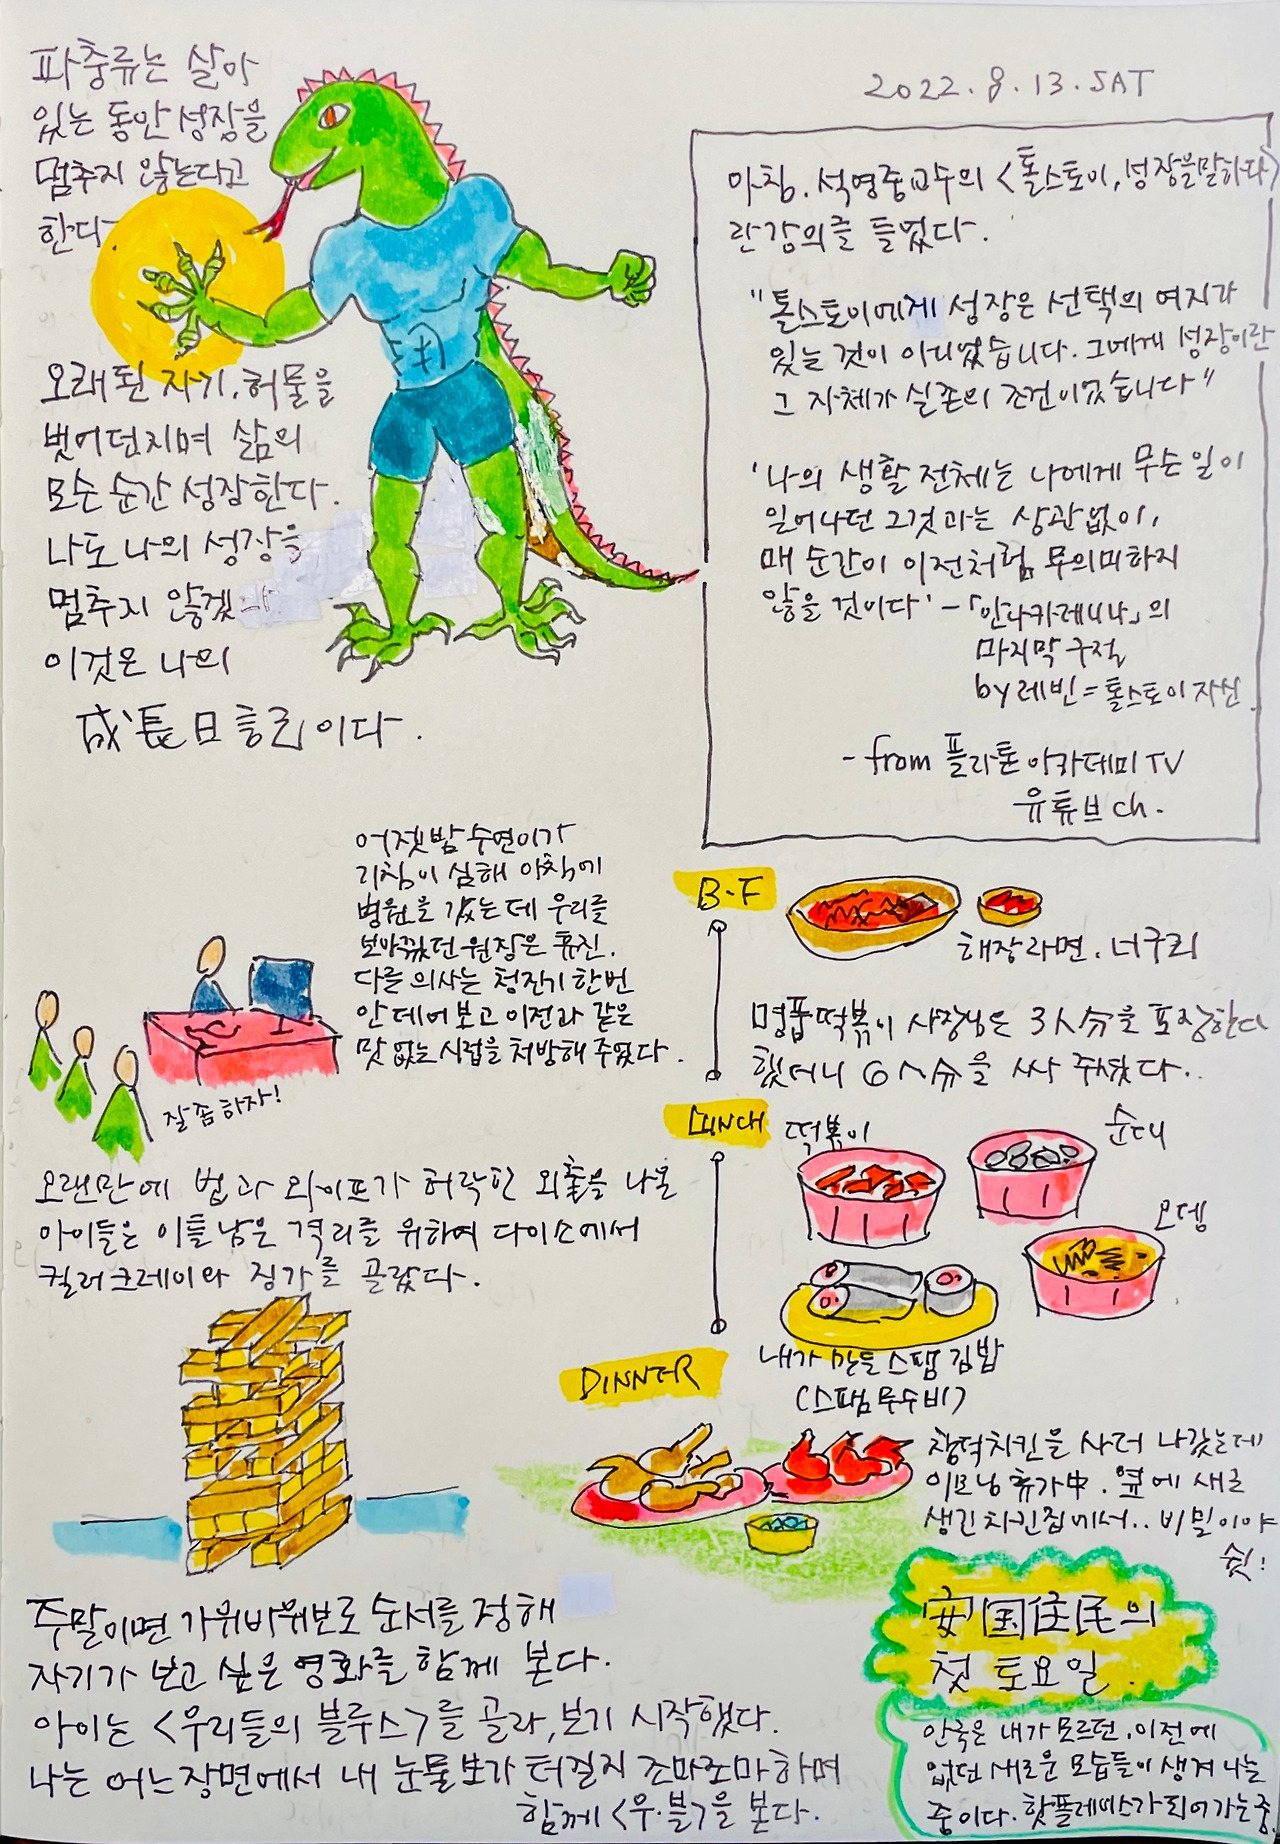 파충류는 살아
있는 동안 성장을
멈추지 않는다고
한다
오래된 자기, 허물을
벗어던지며 삶의
모든 순간 성장한다.
나도 나의 성장을
멈추지 않겠다
이것은 나의
成長日記이다.
2022.8.13.SAT
아침. 석영중교수의 <톨스토이, 성장을말하다>
란강의를 들었다.
"톨스토이에게 성장은 선택의 여지가
있는 것이 아니었습니다. 그에게 성장이란
그 자체가 실존의 조건이었습니다"
'나의 생활 전체는 나에게 무슨 일이
일어나던 그것과는 상관없이,
매 순간이 이전처럼 무의미하지
않을 것이다' -「안나카레니나」의
마지막 구절
by 레빈 = 톨스토이 자신
- from 플라톤 아카데미 TV
유튜브 ch.
어젯밤 수연이가
기침이 심해 아침에
병원을 갔는데 우리를
보아왔던 원장은 휴진.
다른 의사는 청진기 한번
안 데어보고 이전과 같은
맛 없는 시럽을 처방해 주었다.
잘 좀 하자!
오랜만에 법과 와이프가 허락한 외출을 나온
아이들은 이틀 남은 격리를 위하여 다이소에서
컬러크레이와 징가를 골랐다.
B.F
해장라면. 너구리
명품떡볶이 사장님은 3人分을 포장한다
했더니 6人分을 싸 주셨다..
LUNCH
떡볶이
순대
오뎅
내가 만든 스팸 김밥
(스팸무수비)
DINNER
참덕치킨을 사러 나갔는데
이모님 휴가中. 옆에 새로
생긴 치킨집에서.. 비밀이야
쉿!
安国住民의
첫 토요일.
안국은 내가 모르던, 이전에
없던 새로운 모습들이 생겨나는
중이다. 핫플레이스가 되어가는중.
주말이면 가위바위보로 순서를 정해
자기가 보고 싶은 영화를 함께 본다.
아이는 <우리들의 블루스>를 골라, 보기 시작했다.
나는 어느장면에서 내 눈물보가 터질지 조마조마하며
함께 <우.블>을 본다.